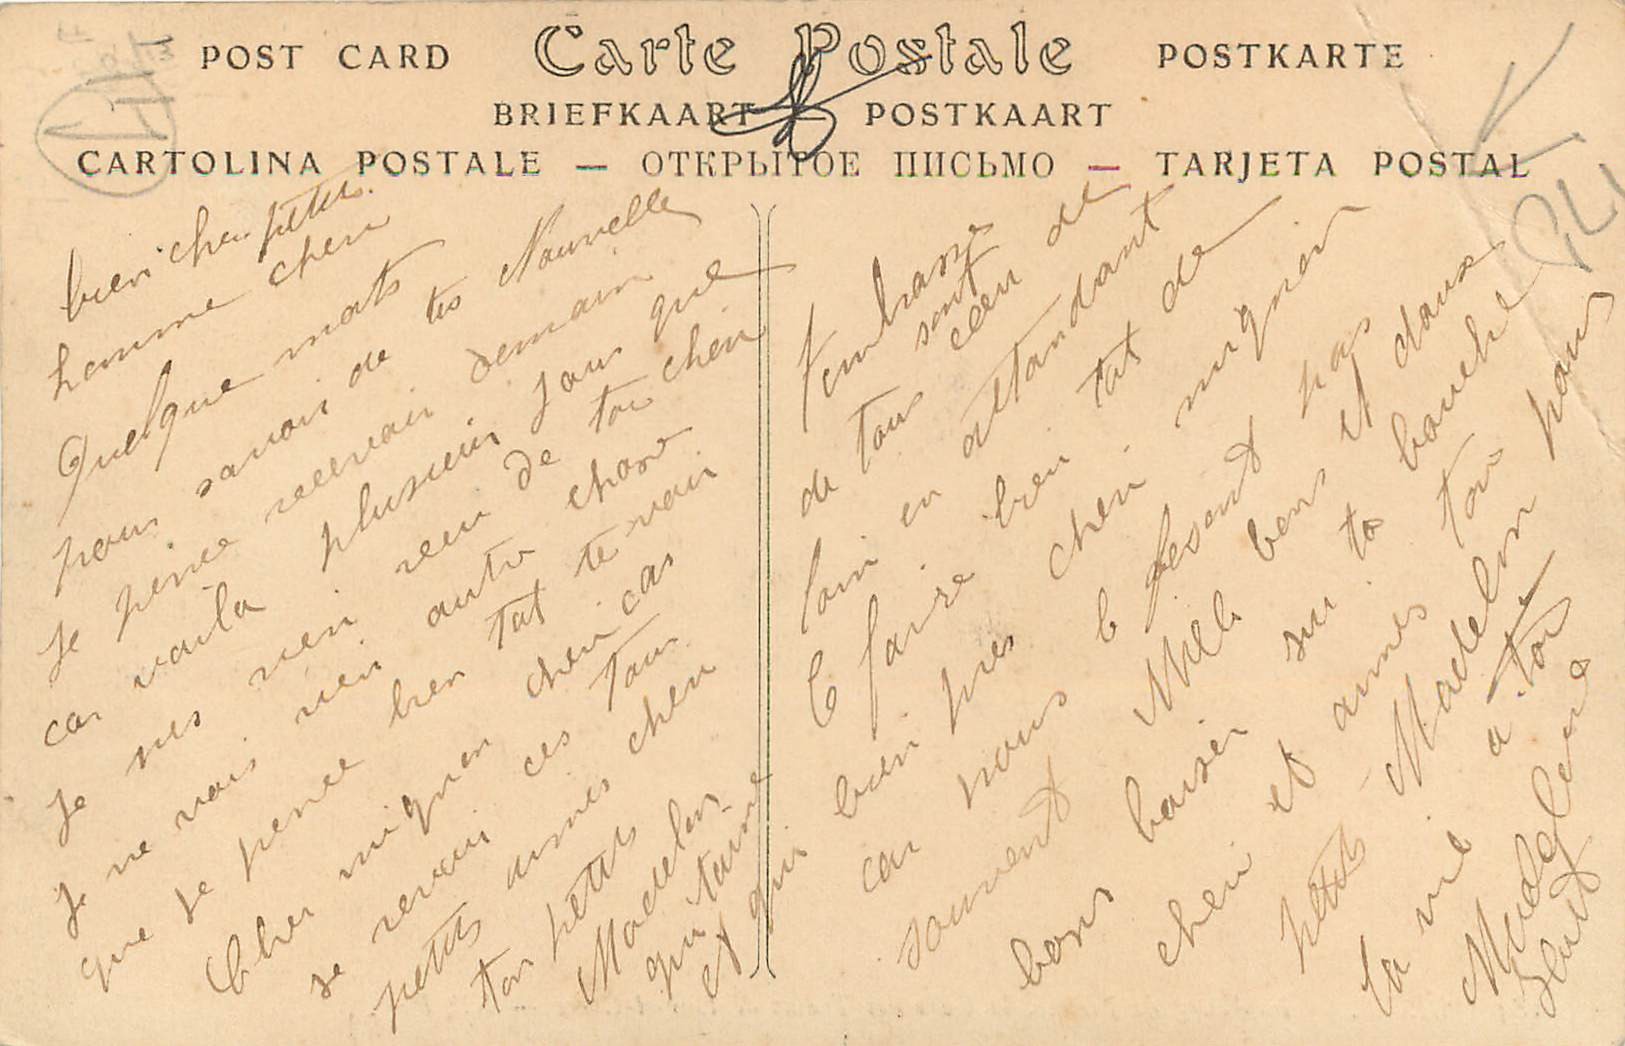 POST CARD Carte Postale POSTKARTE
BRIEFKAART POSTKAART
CARTOLINA POSTALE — ОТКРЫТОЕ ПИСЬМО — TARJETA POSTAL
bien cher petits
homme cheri
Quelque mots
pour savoir de tes Nouvelle
Je pence recevoir demain
car voila plusieur jour que
Je nes rien recu de toi cheri
Je ne vois rien autre chose
que Je pence bien tot te voir
Cher mignon cheri car
se revoir ces tour
petits annes cheri
ton petits
Madelon
qui taime
et qui
tembrasse
de tour sont
coeur de
loin en attandant
le faire bien tot de
bien pres cheri mignon
car nous le fesont pas
souvent Mille bons et doux
bons baiser sur ta bouche
cheri et annes toi pour
petits Madelon
la vie a toi
Madeleine